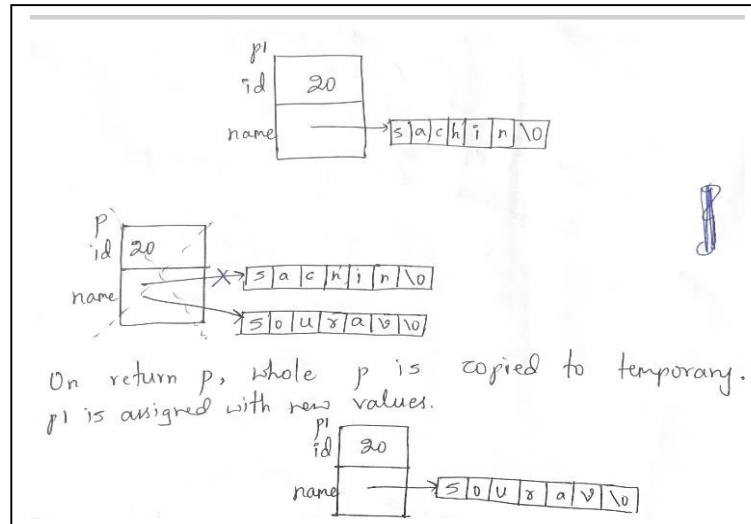 p1
id 20
name s a c h i n \0
p
id 20
name s a c h i n \0
s o u r a v \0
On return p, whole p is copied to temporary.
p1 is assigned with new values.
p1
id 20
name s o u r a v \0